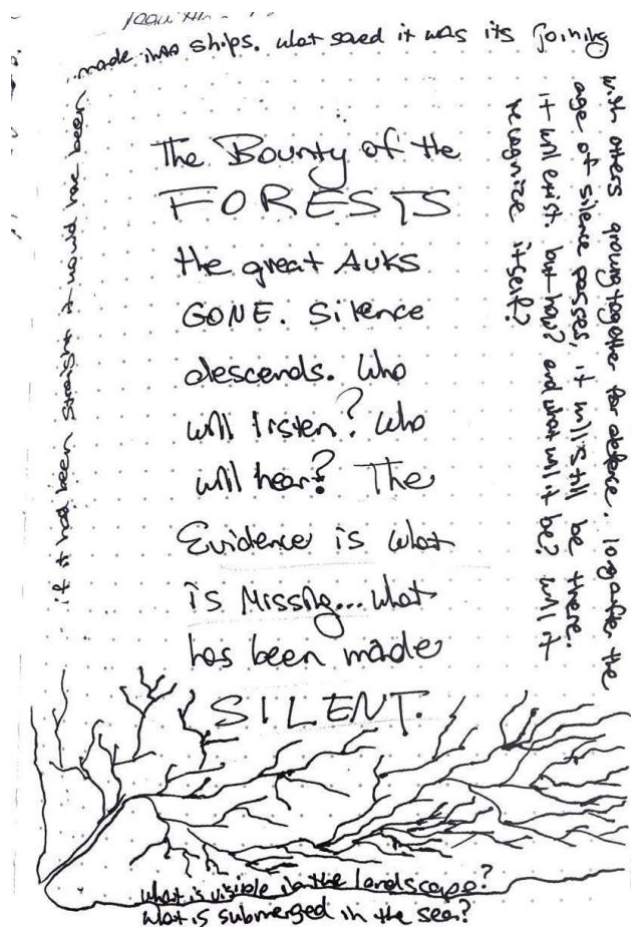 if it had been straight it would have been
made into ships. what saved it was its joining
with others growing together for defence. long after the
age of silence passes, it will still be there.
it will exist. but how? and what will it be? will it
recognize itself?
The Bounty of the
FORESTS
the great AUKS
GONE. Silence
descends. Who
will listen? Who
will hear? The
Evidence is what
is Missing... what
has been made
SILENT.
what is visible in the landscape?
what is submerged in the sea?